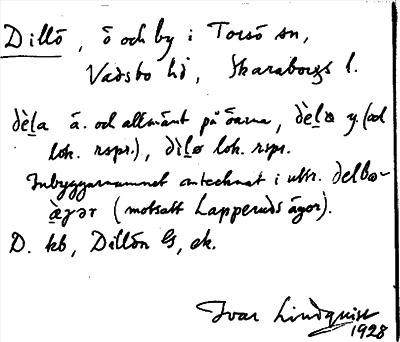 Dillö, ö och by i Torsö sn,
Vadsbo hd, Skaraborgs l.
dèḻa ä. och allmänt på öarna, dèḻɷ y. (od
lok. rspr.), dìḻø lok. rspr.
Inbyggarnamnet antecknat i uttr. delbo-
ægər (motsatt Lapperuds ägor).
D. kb, Dillön G, ek.
Ivar Lindquist
1928